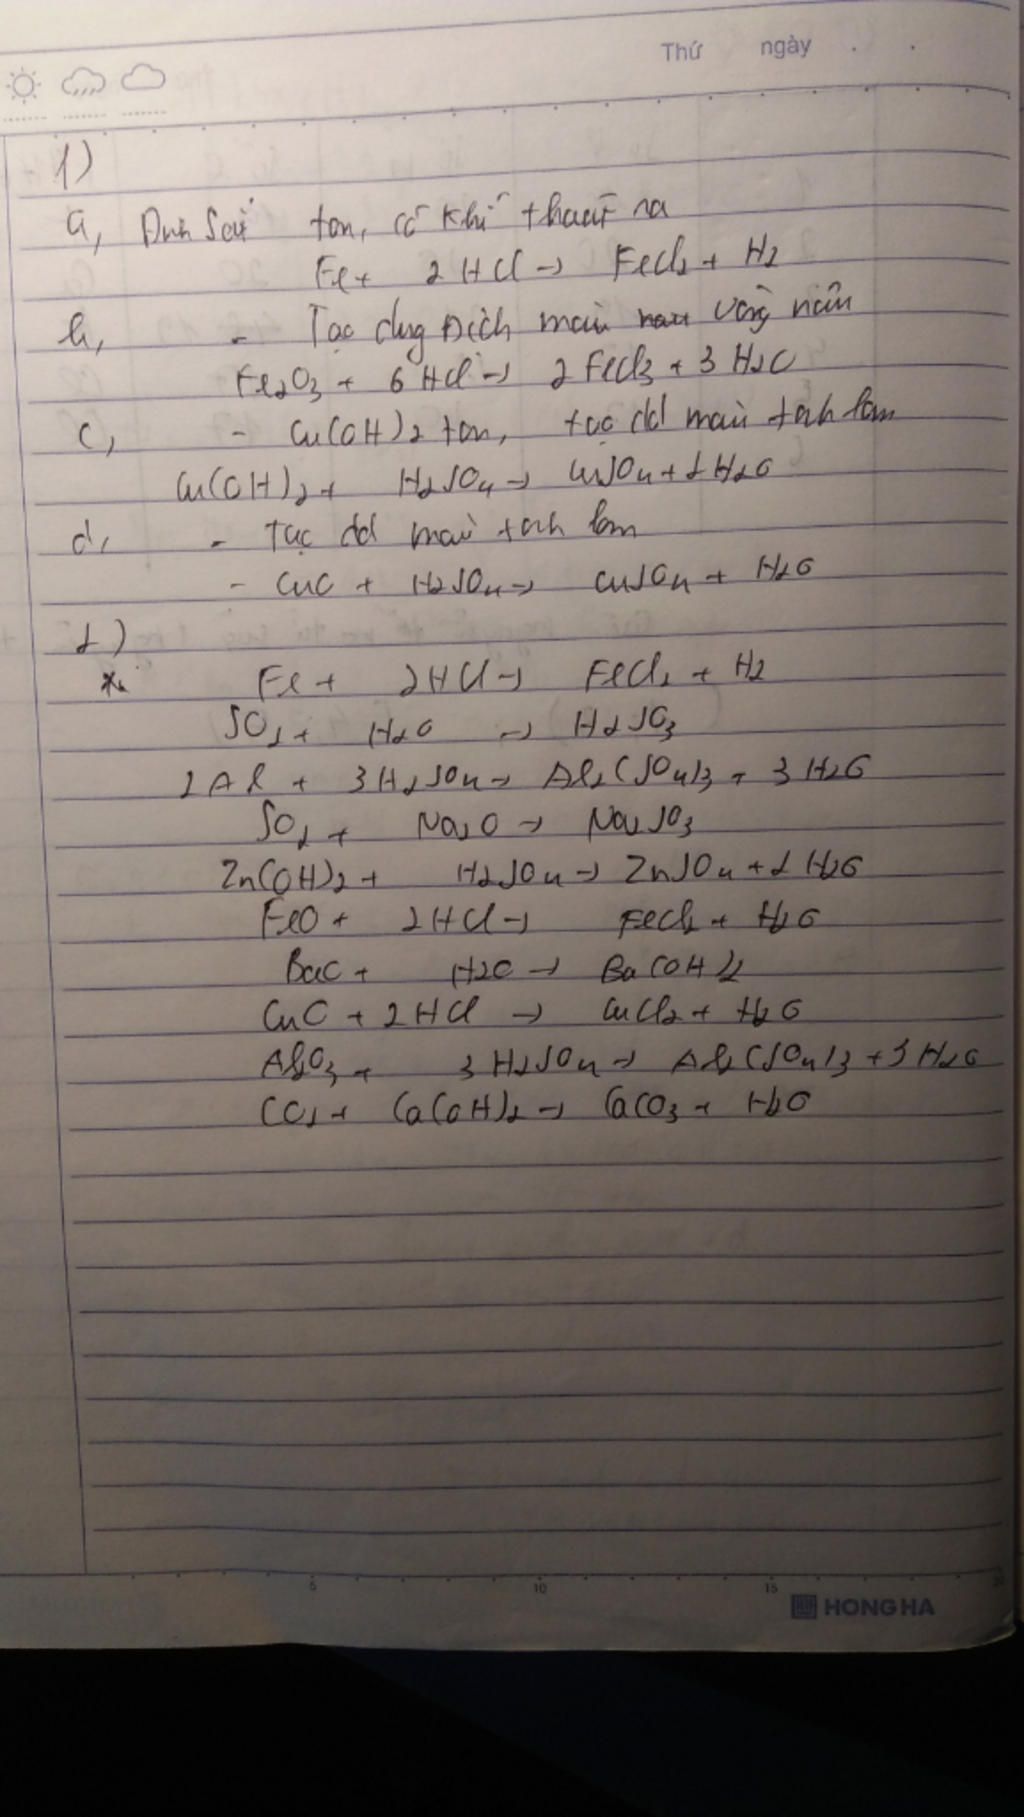 Thứ ngày
1)
a, Đinh Sắt tan, có khí thoát ra
Fe + 2HCl → FeCl2 + H2
b, - Tạo dung Dịch màu vàng nâu
Fe2O3 + 6HCl → 2FeCl3 + 3H2O
c, - Cu(OH)2 tan, tạo dd màu xanh lam
Cu(OH)2 + H2SO4 → CuSO4 + 2H2O
d, - Tạo dd màu xanh lam
- CuO + H2SO4 → CuSO4 + H2O
2)
*. Fe + 2HCl → FeCl2 + H2
SO2 + H2O → H2SO3
2Al + 3H2SO4 → Al2(SO4)3 + 3H2O
SO2 + Na2O → Na2SO3
Zn(OH)2 + H2SO4 → ZnSO4 + 2H2O
FeO + 2HCl → FeCl2 + H2O
BaO + H2O → Ba(OH)2
CuO + 2HCl → CuCl2 + H2O
Al2O3 + 3H2SO4 → Al2(SO4)3 + 3H2O
CO2 + Ca(OH)2 → CaCO3 + H2O
5 10 15 20
HONG HA